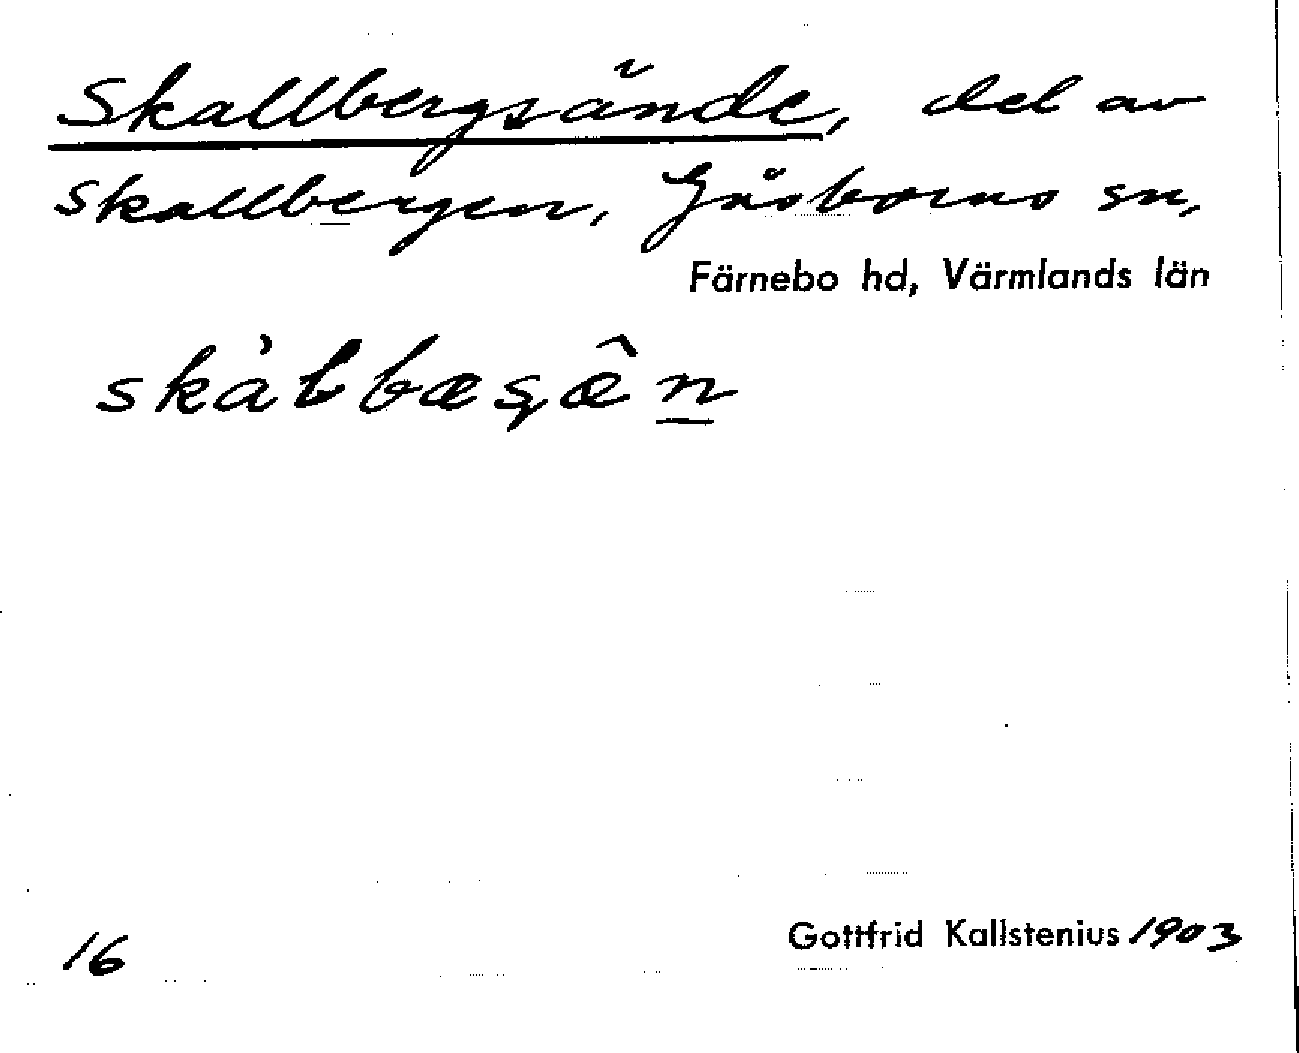 Skallbergsände, del av
Skallbergen, Gåsborns sn,
Färnebo hd, Värmlands län
16
Gottfrid Kallstenius 1903